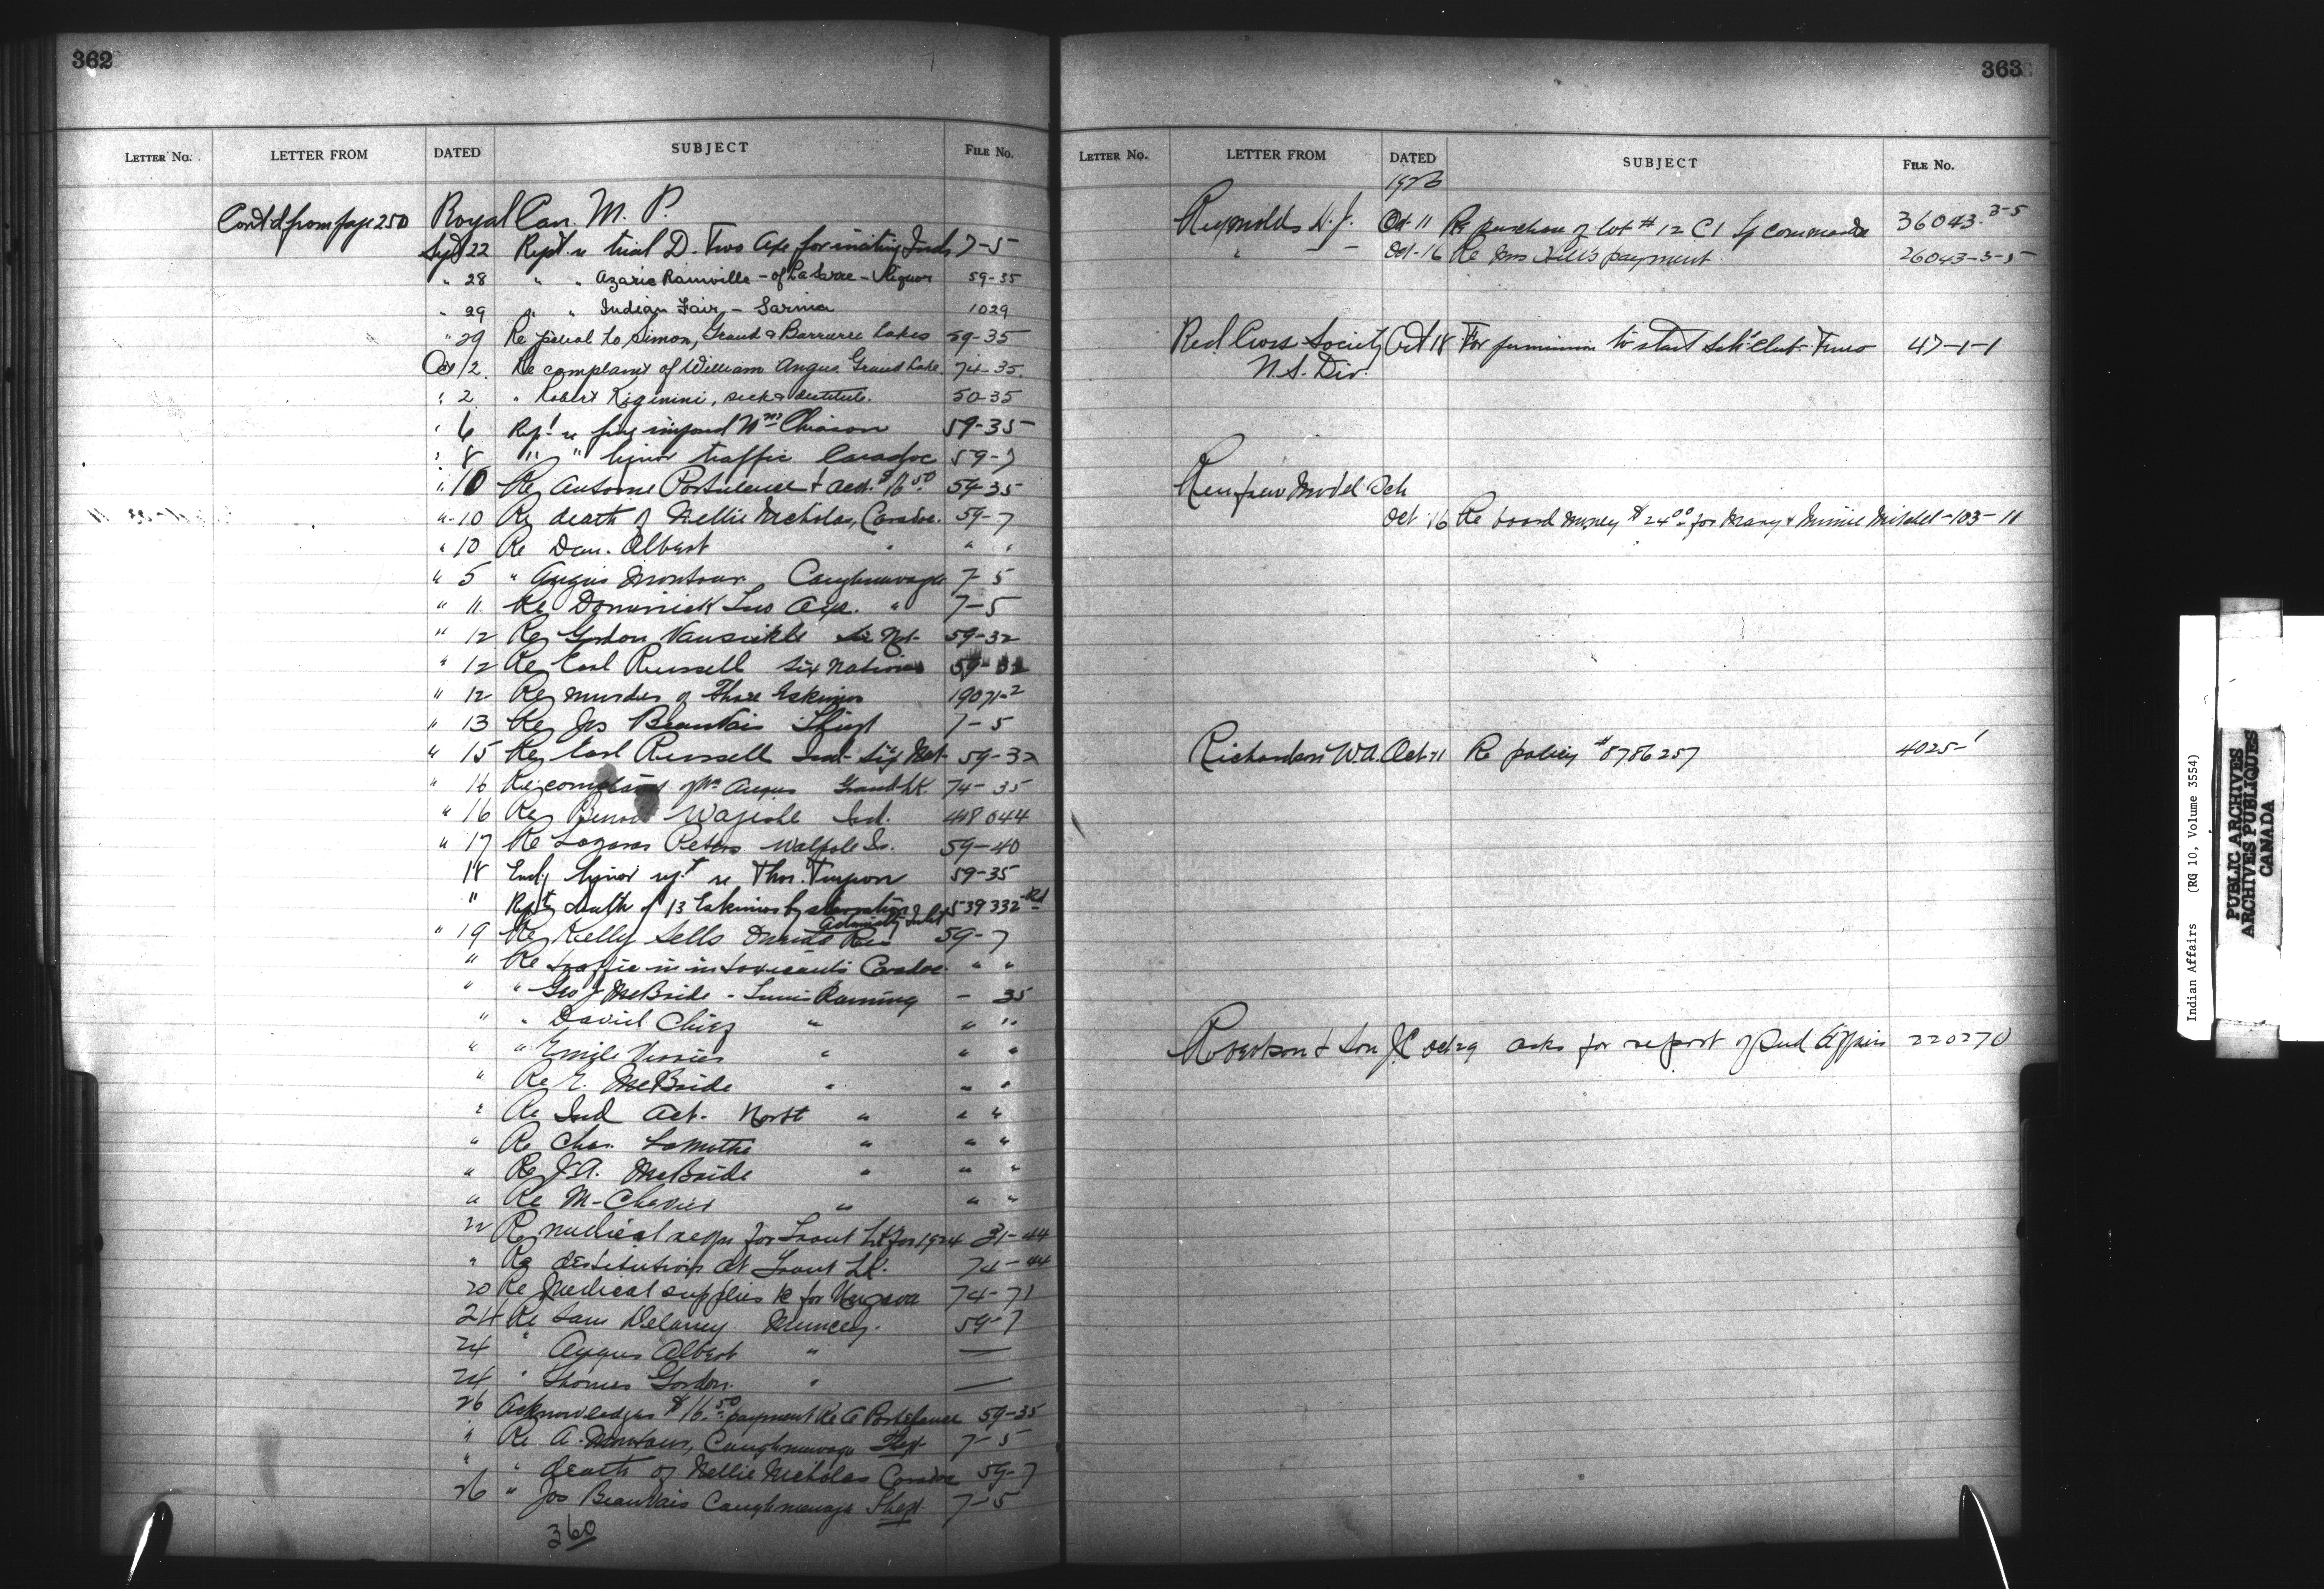 362
LETTER NO. LETTER FROM DATED SUBJECT FILE NO.
Cont'd from page 250 Royal Can. M. P.
Sept 22 Rept. re trial D. Two Axe for inciting Inds 7-5
" 28 " " Azarie Rainville - of LaSarre - Liquor 59-35
" 29 " " Indian Fair - Sarnia 1029
" 29 Re patrol to Simon, Grand & Barriere Lakes 59-35
Oct 2 Re complaint of William Angus Grand Lake 74-35
" 2 " Robert Kiginini, sick & destitute. 50-35
" 6 Rept re fine imposed Chiason 59-35
" 8 " " liquor traffic Caradoc 59-7
" 10 Re Antoine Portelance & acct. $16.50 59-35
" 10 Re death of Nellie Nicholas, Caradoc. 59-7
" 10 Re Dan. Albert " " "
" 5 " Angus Montour, Caughnawaga 7-5
" 11 Re Dominick Two Axe. " 7-5
" 12 Re Gordon Vansickle Six Nat. 59-32
" 12 Re Earl Russell Six Nations 59-32
" 12 Re murder of Three Eskimos 19071-2
" 13 Re Jos Beauvais Theft 7-5
" 15 Re Earl Russell Ind. Six Nat. 59-32
" 16 Re complaint of Wm Angus Grand Lk. 74-35
" 16 Re Wajeshe Ind. 448044
" 17 Re Lazarus Peters Walpole Is. 59-40
18 Encl'g liquor rept re Thos. Turpson 59-35
" Rept death of 13 Eskimos by starvation Admiralty Inlet 539332
" 19 Re Kelly Sells Oneida Res 59-7
" Re traffic in intoxicants Caradoc " "
" " Geo J McBride - Timis Raming - 35
" " David Chief " " "
" " Emile Verrier " " "
" Re E. McBride " " "
" Re Ind Act. North " " "
" Re Chas. LaMothe " " "
" Re J.A. McBride " " "
" Re M-Chenier " " "
22 Re medical reqn for Trout Lk for 1924 31-44
" Re destitution at Trout Lk. 74-44
20 Re Medical supplies for Ungava 74-71
24 Re Sam Delaney Muncey. 59-7
24 " Angus Albert " —
24 " Thomas Gordon " —
26 Acknowledges $16.50 payment Re A Portelance 59-35
" Re A. Montour, Caughnawaga Theft 7-5
" " death of Nellie Nicholas Caradoc 59-7
26 " Jos Beauvais Caughnawaga Theft 7-5
360
363
LETTER NO. LETTER FROM DATED SUBJECT FILE NO.
Reynolds H. J. Oct 11 Re purchase of lot # 12 C1 36043-3-5
" Oct-16 Re Mrs Hill's payment 26043-3-5
Red Cross Society Oct 18 For permission to start Truro 47-1-1
N.S. Div.
Renfrew Model Sch
Oct 16 Re board money $24.00 for Mary & Minnie Mitchel 103-11
Richardson W.A. Oct 11 Re policy #8786257 4025-1
Robertson & Son J.C Oct 29 asks for report of Ind Affairs 220270
Indian Affairs (RG 10, Volume 3554)
PUBLIC ARCHIVES
ARCHIVES PUBLIQUES
CANADA